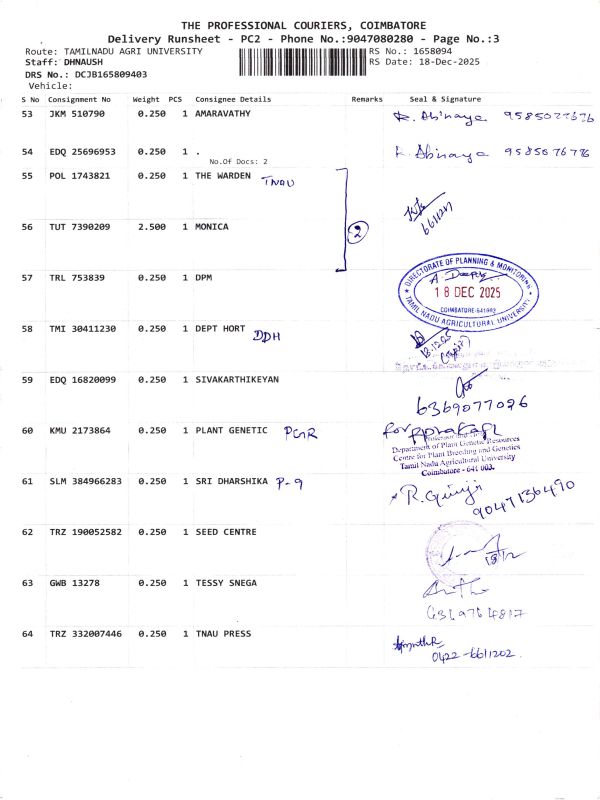 THE PROFESSIONAL COURIERS, COIMBATORE
Delivery Runsheet - PC2 - Phone No.:9047080280 - Page No.:3
Route: TAMILNADU AGRI UNIVERSITY RS No.: 1658094
Staff: DHNAUSH RS Date: 18-Dec-2025
DRS No.: DCJB165809403
Vehicle:
S No Consignment No Weight PCS Consignee Details Remarks Seal & Signature
53 JKM 510790 0.250 1 AMARAVATHY R. Abinaya
54 EDQ 25696953 0.250 1 . R. Abinaya
No.Of Docs: 2
55 POL 1743821 0.250 1 THE WARDEN TNAU
56 TUT 7390209 2.500 1 MONICA 2
57 TRL 753839 0.250 1 DPM
DIRECTORATE OF PLANNING & MONITORING
18 DEC 2025
COIMBATORE-641003
TAMIL NADU AGRICULTURAL UNIVERSITY
58 TMI 30411230 0.250 1 DEPT HORT DDH
59 EDQ 16820099 0.250 1 SIVAKARTHIKEYAN
6369077026
60 KMU 2173864 0.250 1 PLANT GENETIC PGR for
Department of Plant Genetic Resources
Centre for Plant Breeding and Genetics
Tamil Nadu Agricultural University
Coimbatore - 641 003.
61 SLM 384966283 0.250 1 SRI DHARSHIKA P-9
9047136490
62 TRZ 190052582 0.250 1 SEED CENTRE
63 GWB 13278 0.250 1 TESSY SNEGA
64 TRZ 332007446 0.250 1 TNAU PRESS
0422-6611202